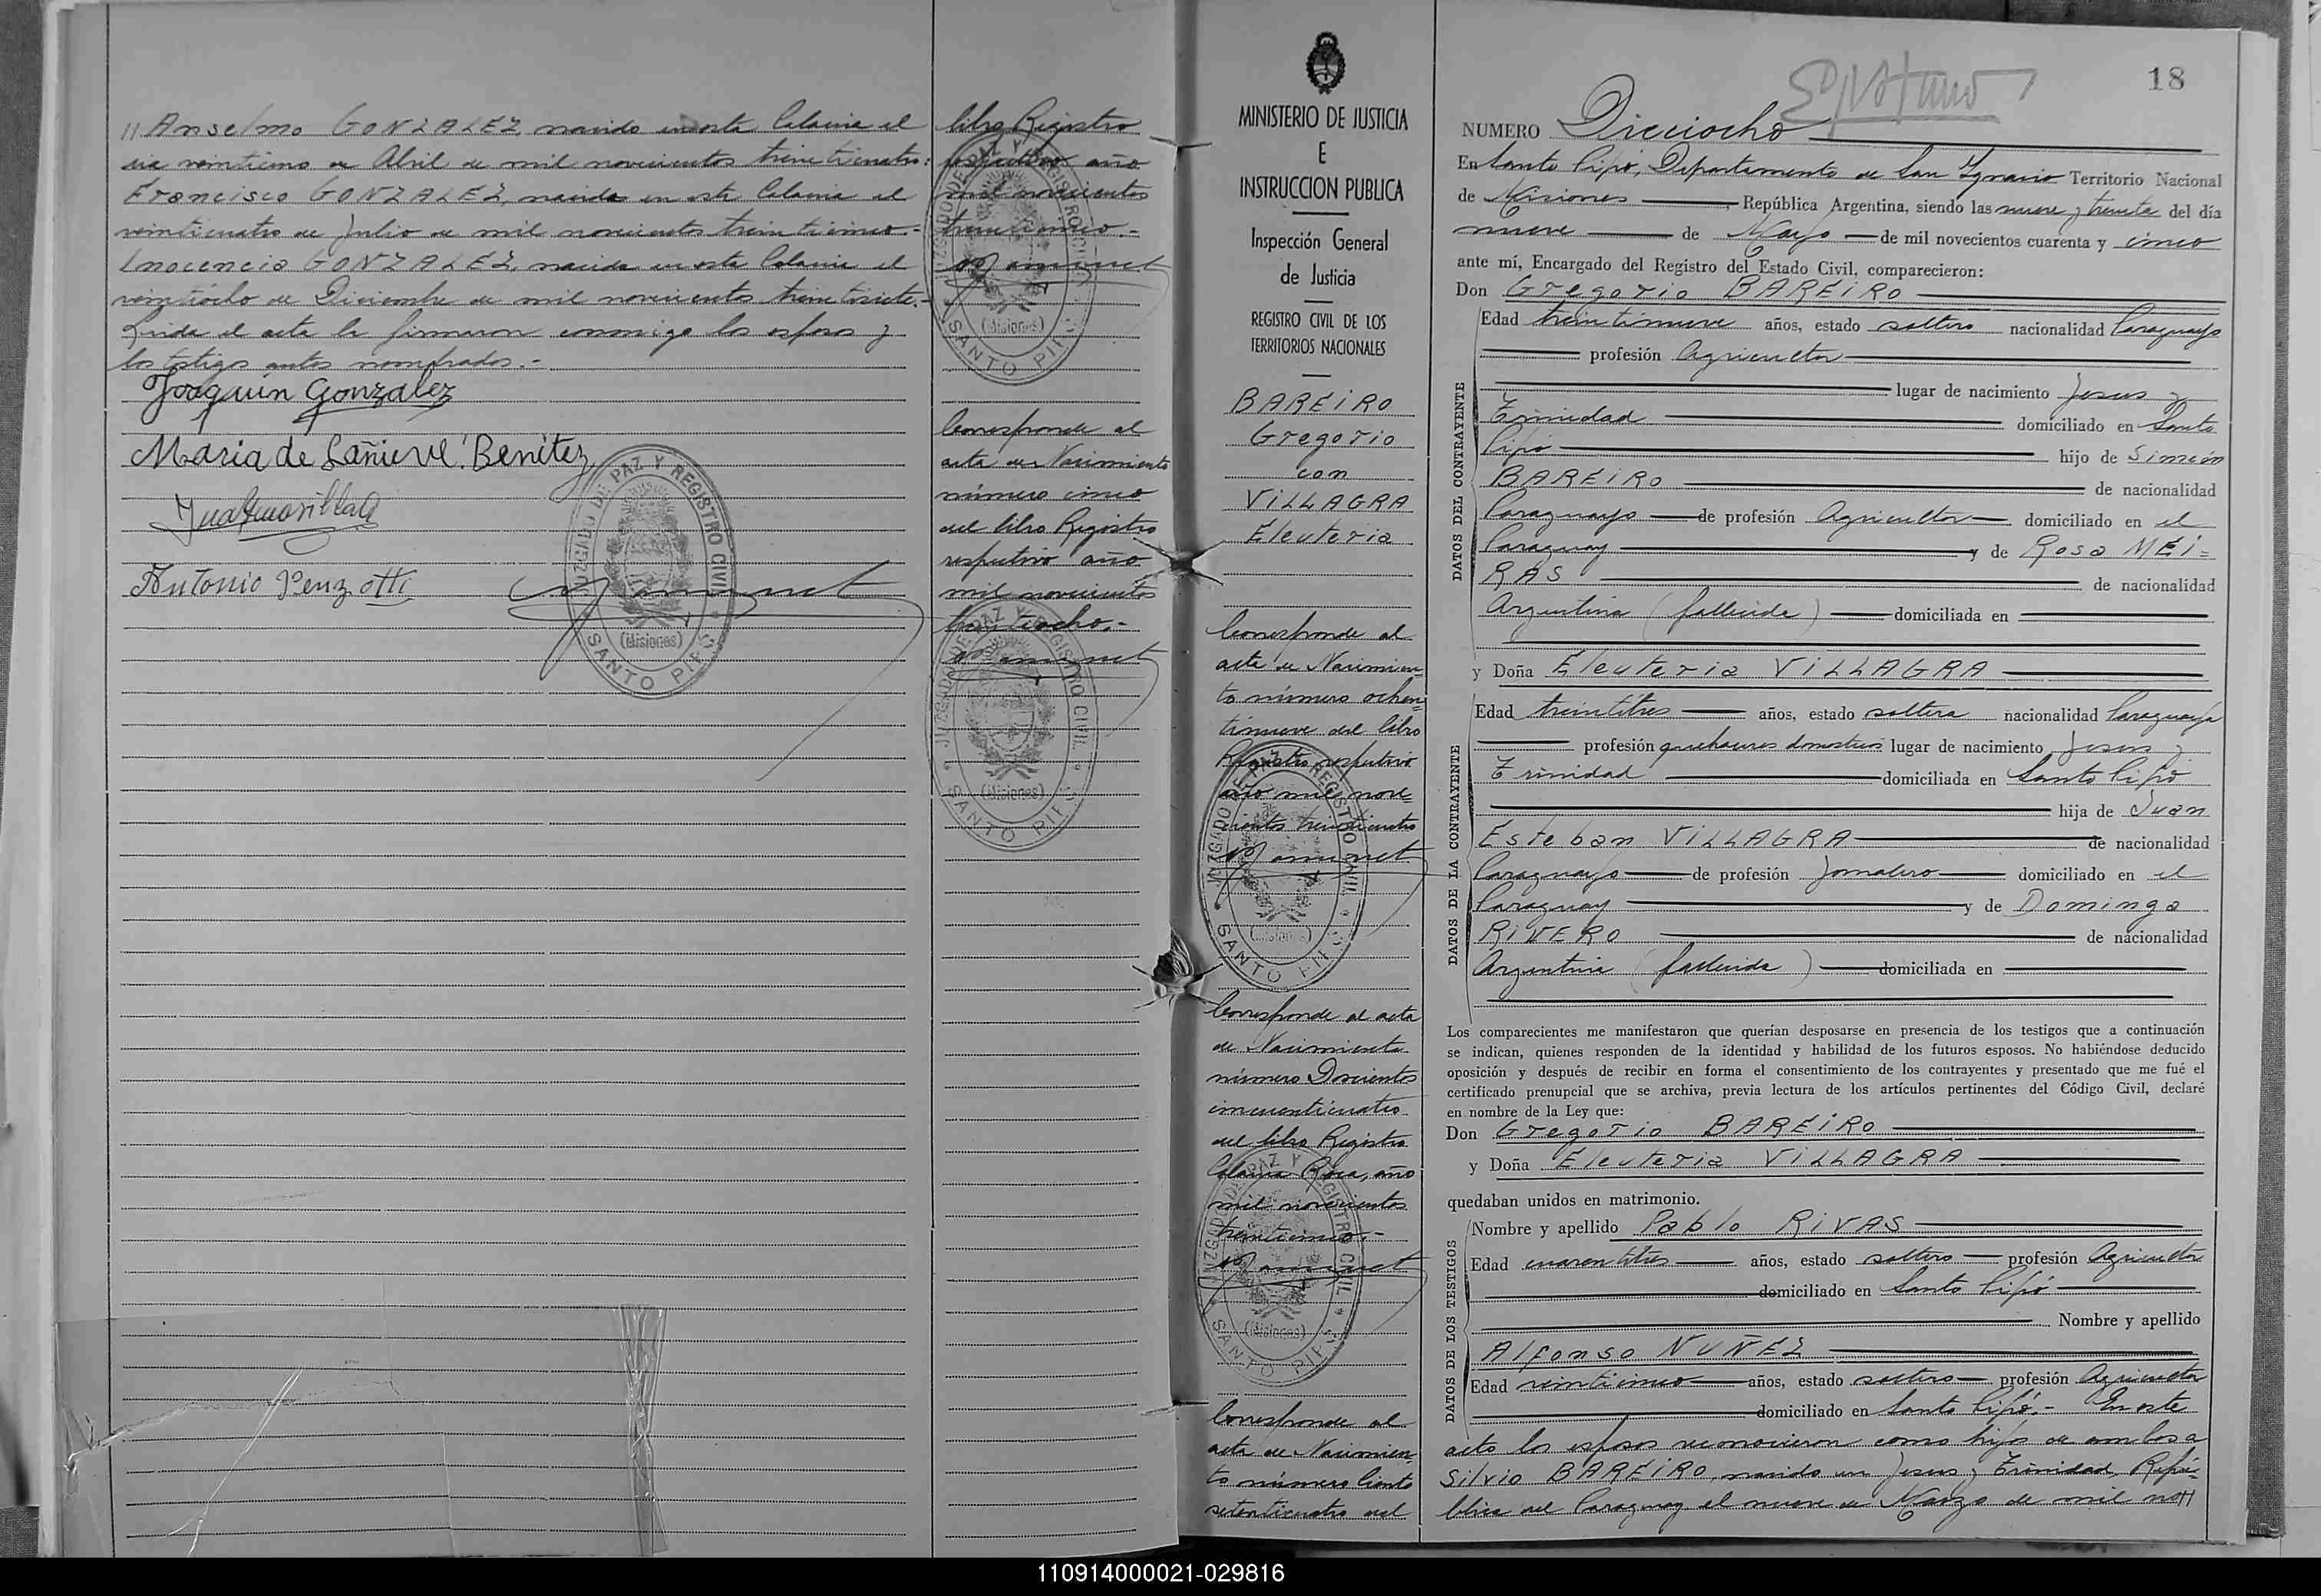 // Anselmo GONZALEZ, nacido en esta Colonia el
dia veintiuno de Abril de mil novecientos treinticuatro:
Francisco GONZALEZ, nacido en esta Colonia el
veinticuatro de Julio de mil novecientos treinticinco.-
Inocencia GONZALEZ, nacida en esta Colonia el
veintiocho de Diciembre de mil novecientos treintisiete.-
Leida el acta la firmaron conmigo los esposos y
los testigos antes nombrados.-
Joaquín Gonzalez
Maria de Lañieve Benítez
Antonio
JUZGADO DE PAZ Y REGISTRO CIVIL
(Misiones)
SANTO PIPÓ
libro Registro
respectivo año
mil novecientos
treinticinco.-
(Misiones)
SANTO PIPÓ
Corresponde al
acta de Nacimiento
número cinco
del libro Registro
respectivo año
mil novecientos
treintiocho.-
JUZGADO DE PAZ Y REGISTRO CIVIL
(Misiones)
SANTO PIPÓ
MINISTERIO DE JUSTICIA
E
INSTRUCCION PUBLICA
Inspección General
de Justicia
REGISTRO CIVIL DE LOS
TERRITORIOS NACIONALES
BAREIRO
Gregorio
con
VILLAGRA
Eleuteria
Corresponde al
acta de Nacimien=
to número ochen=
tinueve del libro
Registro respectivo
año mil nove=
cientos treinticuatro
JUZGADO DE PAZ Y REGISTRO CIVIL
(Misiones)
SANTO PIPÓ
Corresponde al acta
de Nacimiento
número Doscientos
cincuenticuatro
del libro Registro
Colonia Roca, año
mil novecientos
treinticinco.-
JUZGADO DE PAZ Y REGISTRO CIVIL
(Misiones)
SANTO PIPÓ
Corresponde al
acta de Nacimien
to número Ciento
setenticuatro del
18
NUMERO Dieciocho
En Santo Pipó, Departamento de San Ignacio Territorio Nacional
de Misiones, República Argentina, siendo las nueve y treinta del día
nueve de Mayo de mil novecientos cuarenta y cinco
ante mí, Encargado del Registro del Estado Civil, comparecieron:
Don Gregorio BAREIRO
DATOS DEL CONTRAYENTE
Edad treintinueve años, estado soltero nacionalidad Paraguayo
profesión Agricultor
lugar de nacimiento Jesus y
Trinidad domiciliado en Santo
Pipó hijo de Simeón
BAREIRO de nacionalidad
Paraguayo de profesión Agricultor domiciliado en el
Paraguay y de Rosa MEI=
RAS de nacionalidad
Argentina (fallecida) domiciliada en
y Doña Eleuteria VILLAGRA
DATOS DE LA CONTRAYENTE
Edad treintitres años, estado soltera nacionalidad Paraguaya
profesión quehaceres domesticos lugar de nacimiento Jesus y
Trinidad domiciliada en Santo Pipó
hija de Juan
Esteban VILLAGRA de nacionalidad
Paraguayo de profesión Jornalero domiciliado en el
Paraguay y de Dominga
RIVERO de nacionalidad
Argentina (fallecida) domiciliada en
Los comparecientes me manifestaron que querían desposarse en presencia de los testigos que a continuación
se indican, quienes responden de la identidad y habilidad de los futuros esposos. No habiéndose deducido
oposición y después de recibir en forma el consentimiento de los contrayentes y presentado que me fué el
certificado prenupcial que se archiva, previa lectura de los artículos pertinentes del Código Civil, declaré
en nombre de la Ley que:
Don Gregorio BAREIRO
y Doña Eleuteria VILLAGRA
quedaban unidos en matrimonio.
DATOS DE LOS TESTIGOS
Nombre y apellido Pablo RIVAS
Edad cuarentitres años, estado soltero profesión Agricultor
domiciliado en Santo Pipó
Nombre y apellido
Alfonso NUÑEZ
Edad veinticinco años, estado soltero profesión Agricultor
domiciliado en Santo Pipó.- En este
acto los esposos reconocieron como hijos de ambos a
Silvio BAREIRO, nacido en Jesus y Trinidad, Repú-
blica del Paraguay el nueve de Marzo de mil no//
110914000021-029816